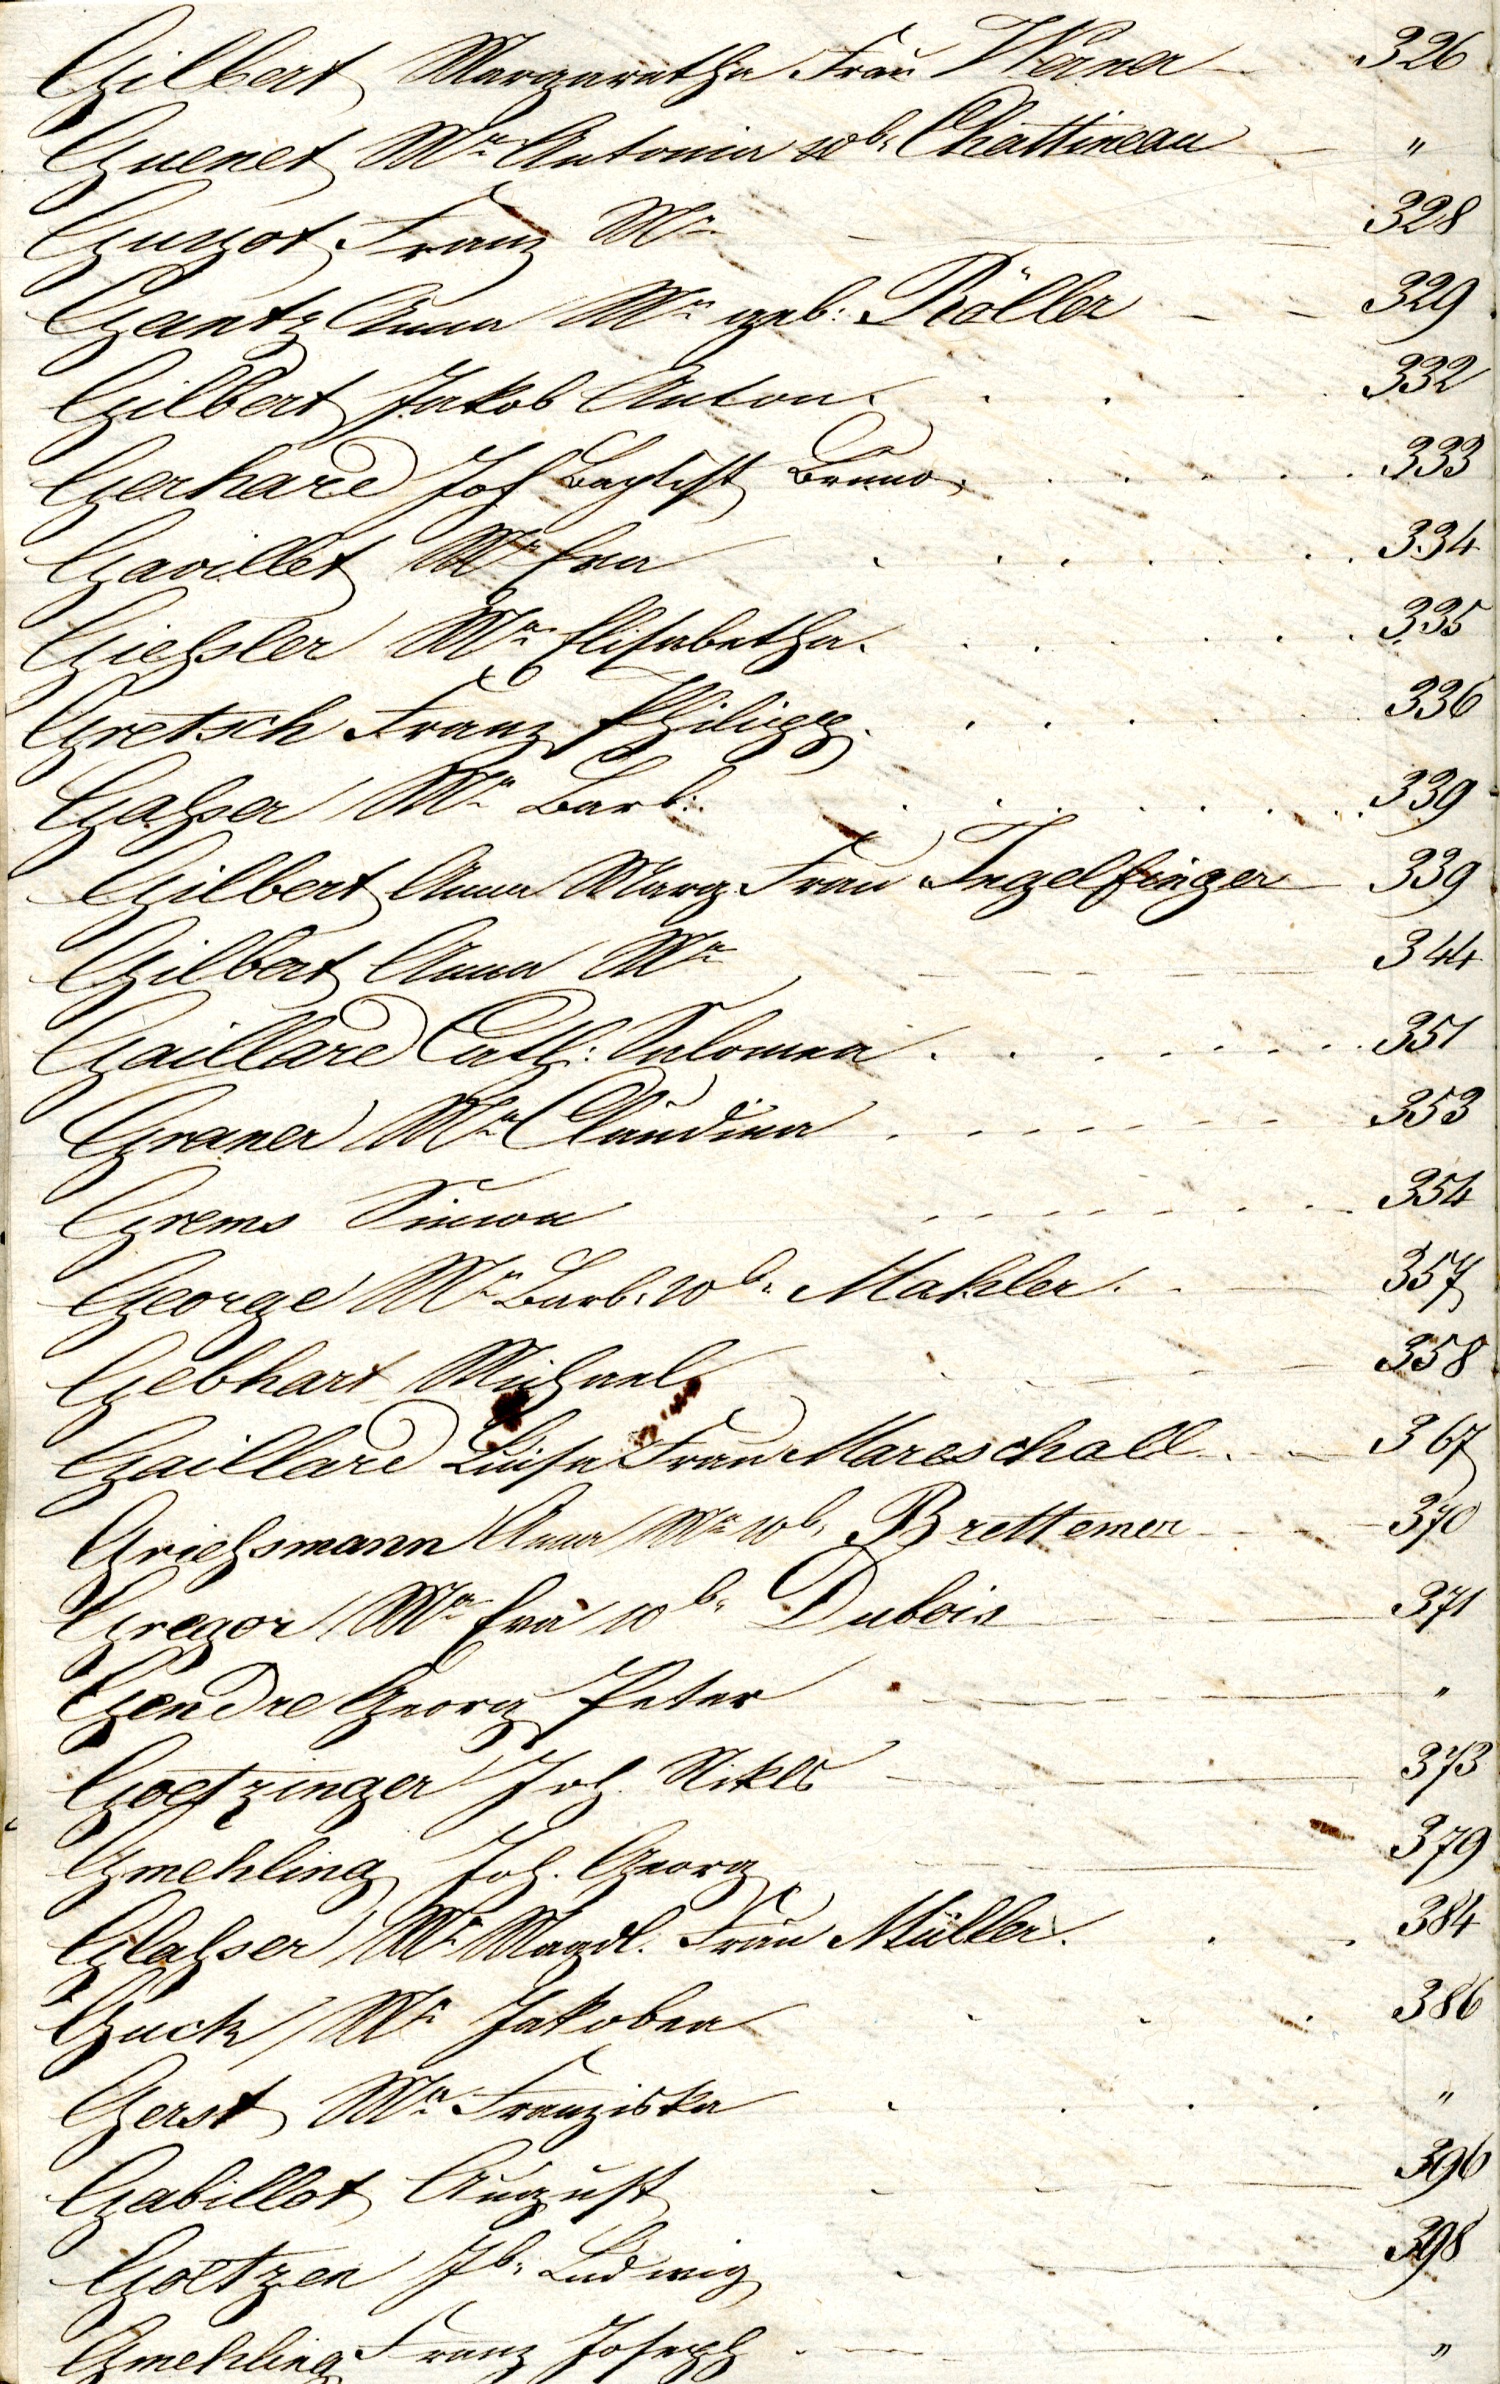 Gilbert Margaretha Frau Werner 326
Guenet Mª Antonia wb. Chattineau "
Guyot Franz Mª 328
Gantz Anna Mª geb: Röller 329
Gilbert Jakob Anton 332
Gerhard Jos Baptist Bruno 333
Gavillet Mª Eva 334
Gießler Mª Elisabetha 335
Gretsch Franz Philipp 336
Gaßer Mª Barb: 339
Gilbert Anna Marg. Frau Ingelfinger 339
Gilbert Anna Mª 344
Gaillard Cath: Salomea 351
Graner Mª Claudina 353
Grems Simon 354
George Mª Barb: wb. Mahler 357
Gebhart Michael 358
Gaillard Luisa Frau Mareschall 367
Grießmann Anna Mª wb. Brettemer 370
Gregor Mª Eva wb. Dubois 371
Gendre Georg Peter "
Goetzinger Joh. Nikls 373
Gmehling Joh. Georg 379
Glaßer Mª Magdl. Frau Müller 384
Guck Mª Jakobea 386
Gerst Mª Franziska "
Gabillot August 396
Goetzen Jb. Ludwig 398
Gmehling Franz Joseph "